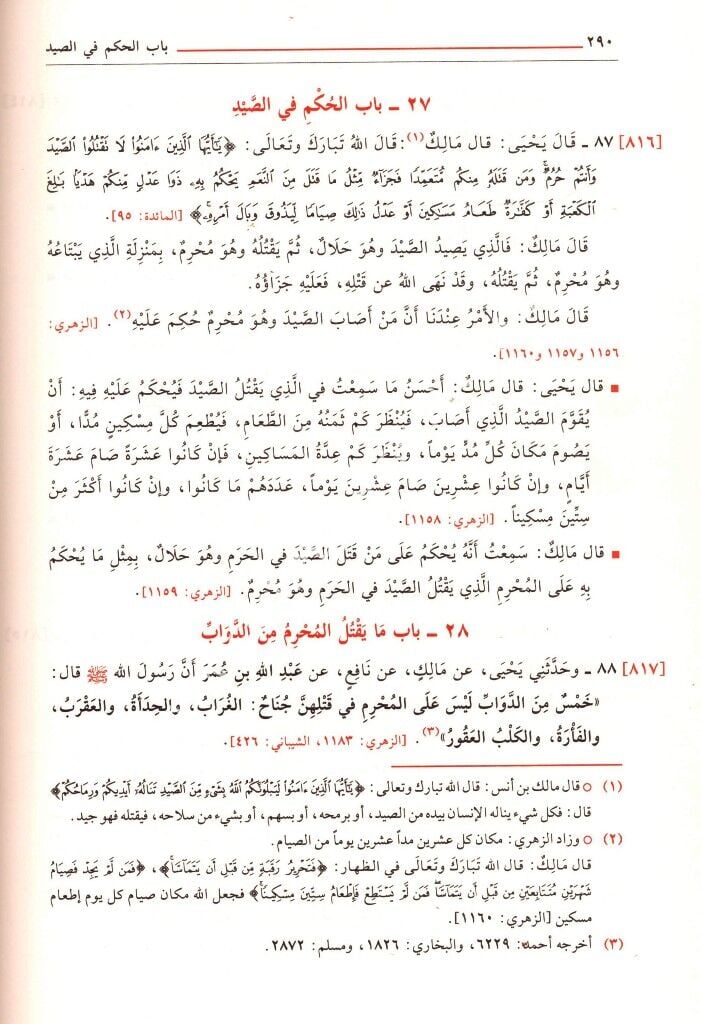 ٢٩٠ باب الحكم في الصيد
٢٧ ـ باب الحُكْمِ في الصَّيْدِ
[٨١٦] ٨٧ ـ قَالَ يَحْيَى: قال مَالِكٌ(١): قَالَ اللهُ تَبَارَكَ وَتَعَالَى: ﴿يَٰٓأَيُّهَا الَّذِينَ ءَامَنُوا لَا تَقْتُلُوا الصَّيْدَ
وَأَنتُمْ حُرُمٌ وَمَن قَتَلَهُ مِنكُم مُّتَعَمِّدًا فَجَزَآءٌ مِّثْلُ مَا قَتَلَ مِنَ النَّعَمِ يَحْكُمُ بِهِۦ ذَوَا عَدْلٍ مِّنكُمْ هَدْيًا بَٰلِغَ
الْكَعْبَةِ أَوْ كَفَّٰرَةٌ طَعَامُ مَسَٰكِينَ أَوْ عَدْلُ ذَٰلِكَ صِيَامًا لِّيَذُوقَ وَبَالَ أَمْرِهِۦ﴾ [المائدة: ٩٥].
قَالَ مَالِكٌ: فَالَّذِي يَصِيدُ الصَّيْدَ وهُوَ حَلَالٌ، ثُمَّ يَقْتُلُهُ وهُوَ مُحْرِمٌ، بِمَنْزِلَةِ الَّذِي يَبْتَاعُهُ
وهُوَ مُحْرِمٌ، ثُمَّ يَقْتُلُهُ، وقَدْ نَهَى اللهُ عن قَتْلِهِ، فَعَلَيْهِ جَزَاؤُهُ.
قَالَ مَالِكٌ: والأَمْرُ عِنْدَنَا أَنَّ مَنْ أَصَابَ الصَّيْدَ وهُوَ مُحْرِمٌ حُكِمَ عَلَيْهِ(٢). [الزهري:
١١٥٦ و١١٥٧ و١١٦٠].
■ قال يَحْيَى: قال مَالِكٌ: أَحْسَنُ مَا سَمِعْتُ في الَّذِي يَقْتُلُ الصَّيْدَ فَيُحْكَمُ عَلَيْهِ فِيهِ: أَنْ
يُقَوَّمَ الصَّيْدُ الَّذِي أَصَابَ، فَيُنْظَرَ كَمْ ثَمَنُهُ مِنَ الطَّعَامِ، فَيُطْعِمَ كُلَّ مِسْكِينٍ مُدًّا، أَوْ
يَصُومَ مَكَانَ كُلِّ مُدٍّ يَوْماً، ويُنْظَرَ كَم عِدَّةُ المَسَاكِينِ، فَإنْ كَانُوا عَشَرَةً صَامَ عَشَرَةَ
أَيَّامٍ، وإنْ كَانُوا عِشْرِينَ صَامَ عِشْرِينَ يَوْماً، عَدَدَهُمْ مَا كَانُوا، وإنْ كَانُوا أَكْثَرَ مِنْ
سِتِّينَ مِسْكِيناً. [الزهري: ١١٥٨].
■ قال مَالِكٌ: سَمِعْتُ أَنَّهُ يُحْكَمُ عَلَى مَنْ قَتَلَ الصَّيْدَ في الحَرَمِ وهُوَ حَلَالٌ، بِمِثْلِ مَا يُحْكَمُ
بِهِ عَلَى المُحْرِمِ الَّذِي يَقْتُلُ الصَّيْدَ في الحَرَمِ وهُوَ مُحْرِمٌ. [الزهري: ١١٥٩].
٢٨ ـ باب مَا يَقْتُلُ المُحْرِمُ مِنَ الدَّوَابِّ
[٨١٧] ٨٨ ـ وحَدَّثَنِي يَحْيَى، عن مَالِكٍ، عن نَافِعٍ، عن عَبْدِ اللهِ بنِ عُمَرَ أَنَّ رَسُولَ الله ﷺ قال:
«خَمْسٌ مِنَ الدَّوَابِّ لَيْسَ عَلَى المُحْرِمِ في قَتْلِهِنَّ جُنَاحٌ: الغُرَابُ، والحِدَأَةُ، والعَقْرَبُ،
والفَأْرَةُ، والكَلْبُ العَقُورُ»(٣). [الزهري: ١١٨٣، الشيباني: ٤٢٦].
(١) ○ قال مالك بن أنس: قال الله تبارك وتعالى: ﴿يَٰٓأَيُّهَا الَّذِينَ ءَامَنُوا لَيَبْلُوَنَّكُمُ اللَّهُ بِشَىْءٍ مِّنَ الصَّيْدِ تَنَالُهُۥٓ أَيْدِيكُمْ وَرِمَاحُكُمْ﴾
قال: فكل شيء يناله الإنسان بيده من الصيد، أو برمحه، أو بسهم، أو بشيء من سلاحه، فيقتله فهو جيد.
(٢) ○ وزاد الزهري: مكان كل عشرين مداً عشرين يوماً من الصيام.
قال مَالِكٌ: قال اللهُ تَبَارَكَ وَتَعَالَى في الظهار: ﴿فَتَحْرِيرُ رَقَبَةٍ مِّن قَبْلِ أَن يَتَمَآسَّا﴾، ﴿فَمَن لَّمْ يَجِدْ فَصِيَامُ
شَهْرَيْنِ مُتَتَابِعَيْنِ مِن قَبْلِ أَن يَتَمَآسَّا فَمَن لَّمْ يَسْتَطِعْ فَإِطْعَامُ سِتِّينَ مِسْكِينًا﴾ فجعل الله مكان صيام كل يوم إطعام
مسكين [الزهري: ١١٦٠].
(٣) أخرجه أحمد: ٦٢٢٩، والبخاري: ١٨٢٦، ومسلم: ٢٨٧٢.